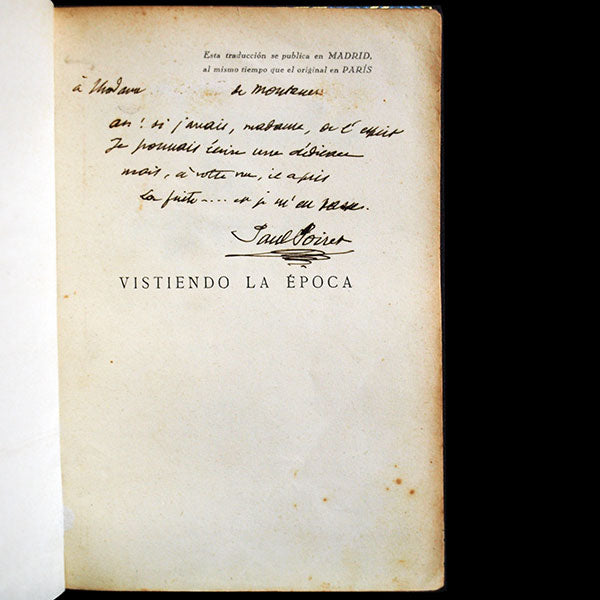 Esta traducción se publica en MADRID,
al mismo tiempo que el original en PARÍS
à Madame de Montaner
ah ! si j'avais, madame, de l'esprit
Je pourrais écrire une dédicace
mais, à votre vue, il a pris
La fuite..... et je m'en
Paul Poiret
VISTIENDO LA ÉPOCA